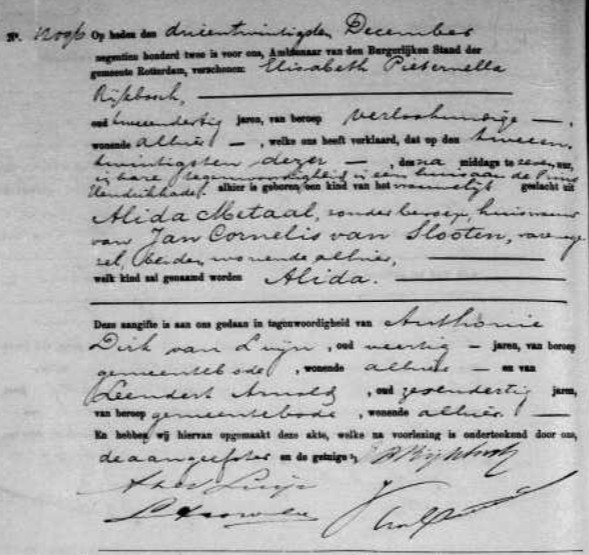 Nº. Op heden den drieentwintigsten December
negentien honderd twee is voor ons, Ambtenaar van den Burgerlijken Stand der
gemeente Rotterdam, verschenen: Elisabeth Pieternella
Rijsbosch,
oud tweeendertig jaren, van beroep verloskundige —,
wonende alhier —, welke ons heeft verklaard, dat op den tweeen
twintigsten dezer —, des na middags te zeven uur,
in hare tegenwoordigheid in een huis aan de Prins
Hendrikkade, alhier is geboren een kind van het vrouwelijk geslacht uit
Alida Metaal, zonder beroep, huisvrouw
van Jan Cornelis van Slooten,
beiden wonende alhier,
welk kind zal genaamd worden Alida.
Deze aangifte is aan ons gedaan in tegenwoordigheid van Anthonie
Dirk van Luijn, oud veertig — jaren, van beroep
gemeentebode, wonende alhier — en van
Leendert Arnold, oud zesendertig jaren,
van beroep gemeentebode, wonende alhier —
En hebben wij hiervan opgemaakt deze akte, welke na voorlezing is onderteekend door ons,
de aangeefster en de getuigen